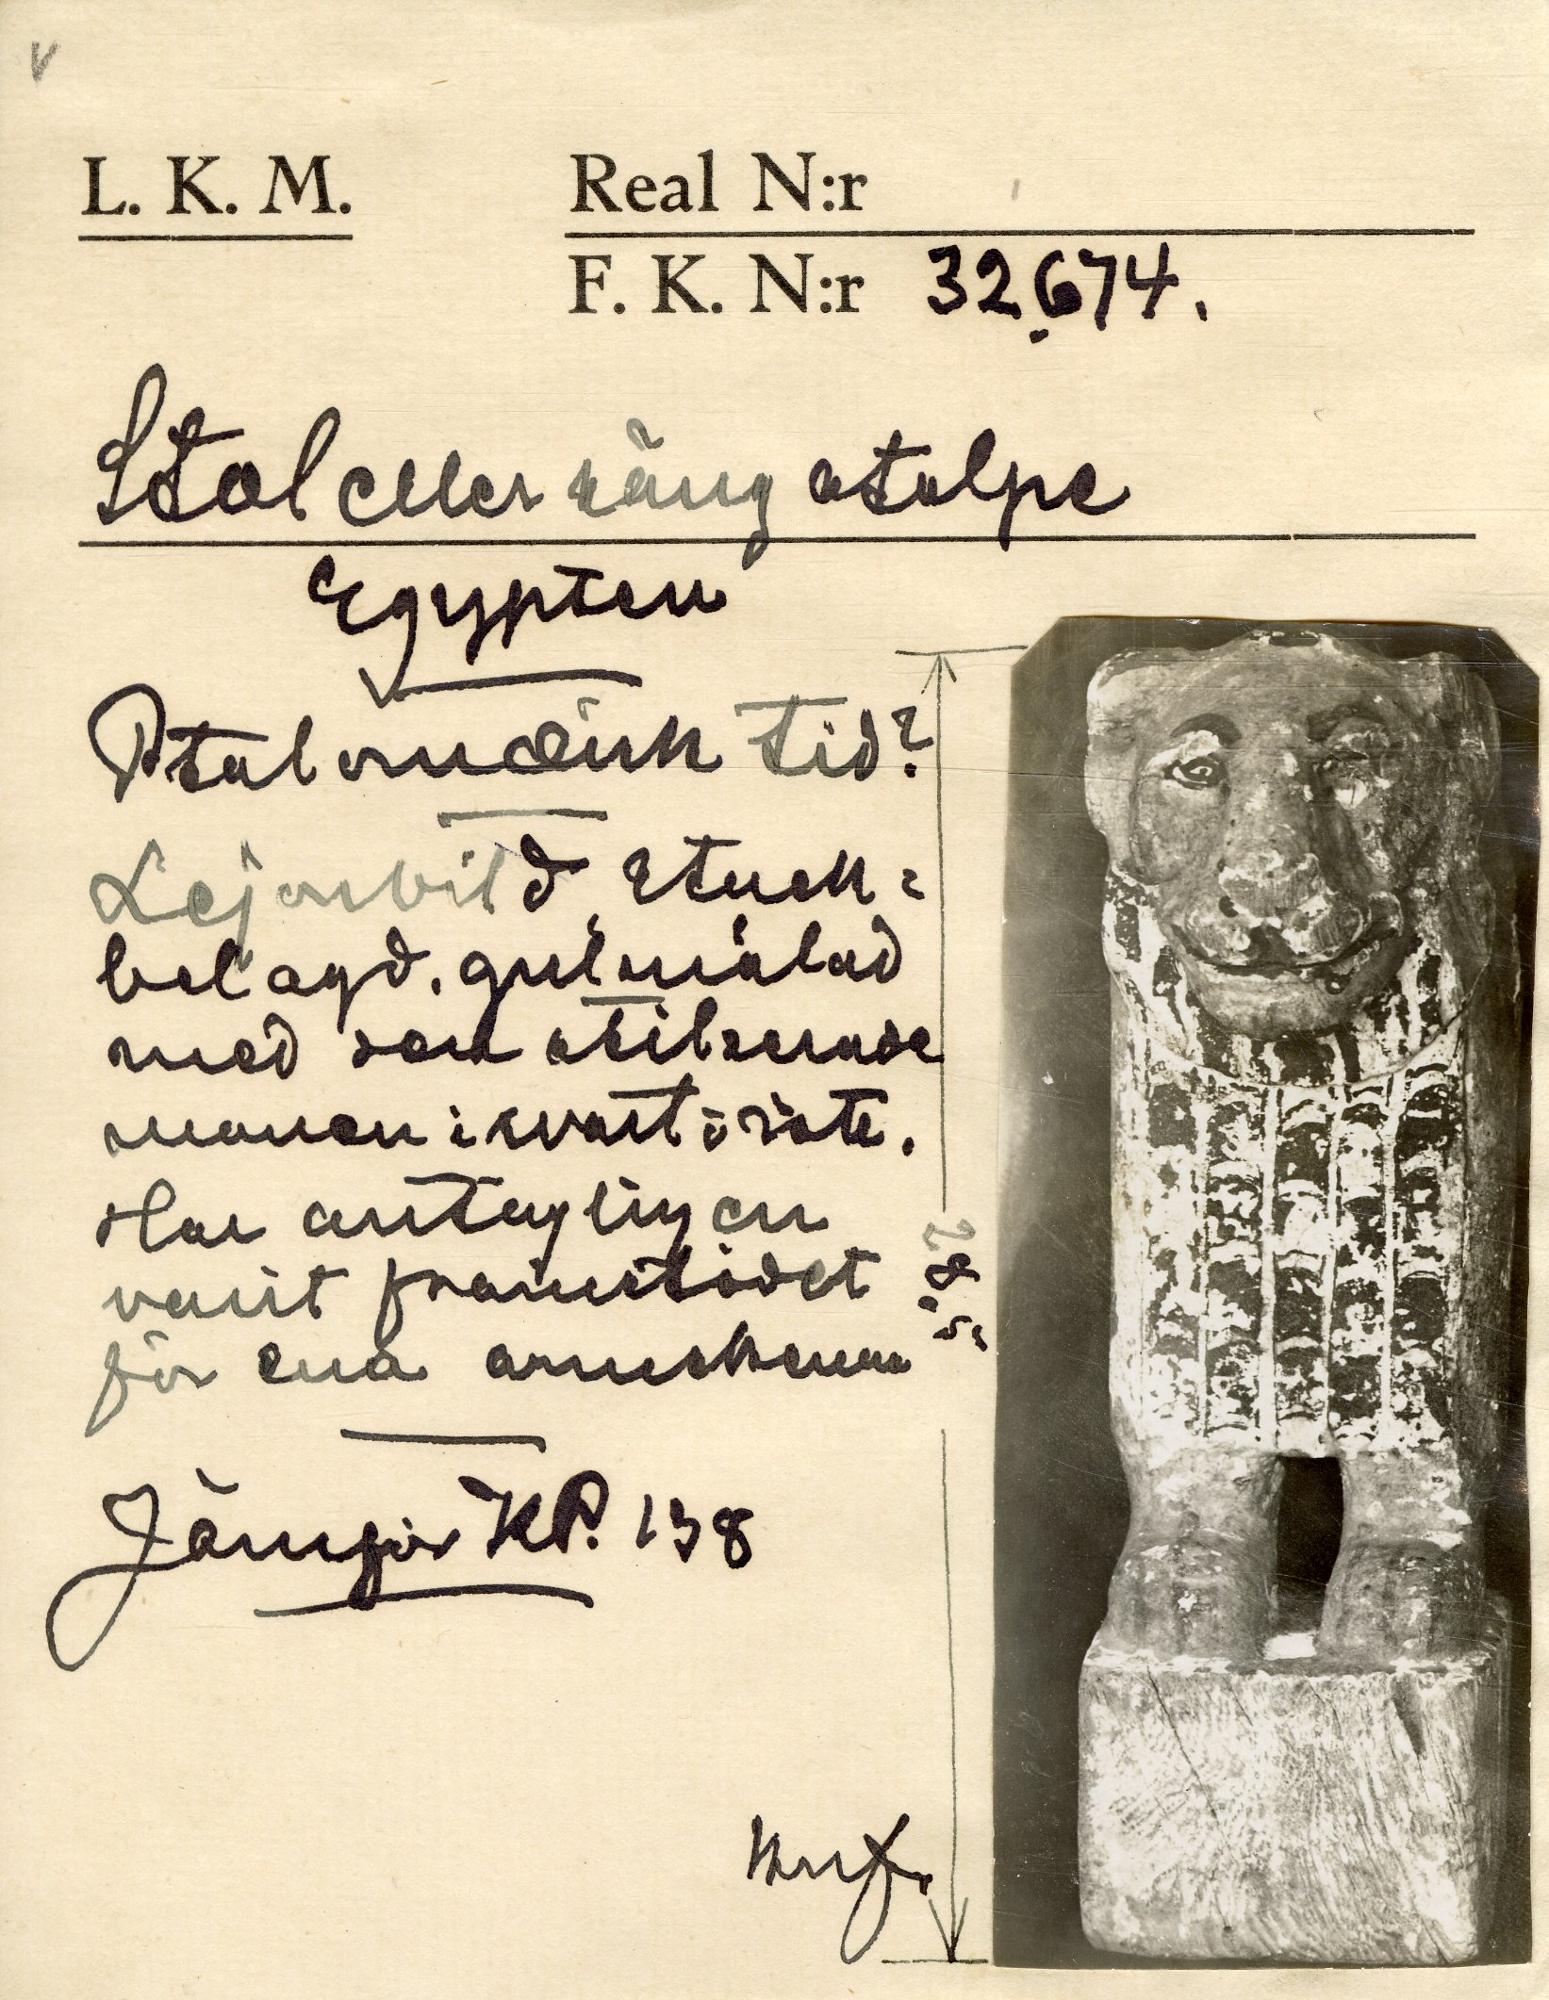 V
L. K. M.
Real N:r
F. K. N:r 32.674.
Stol eller säng stolpe
Egypten
Ptolomæisk tid?
Lejonbild, stuck=
belagd, gulmålad
med som stiliserade
manen i svart o. rött.
Har antagligen
varit framstödet
för ena armstödet
Jämför KP. 138
28.5.